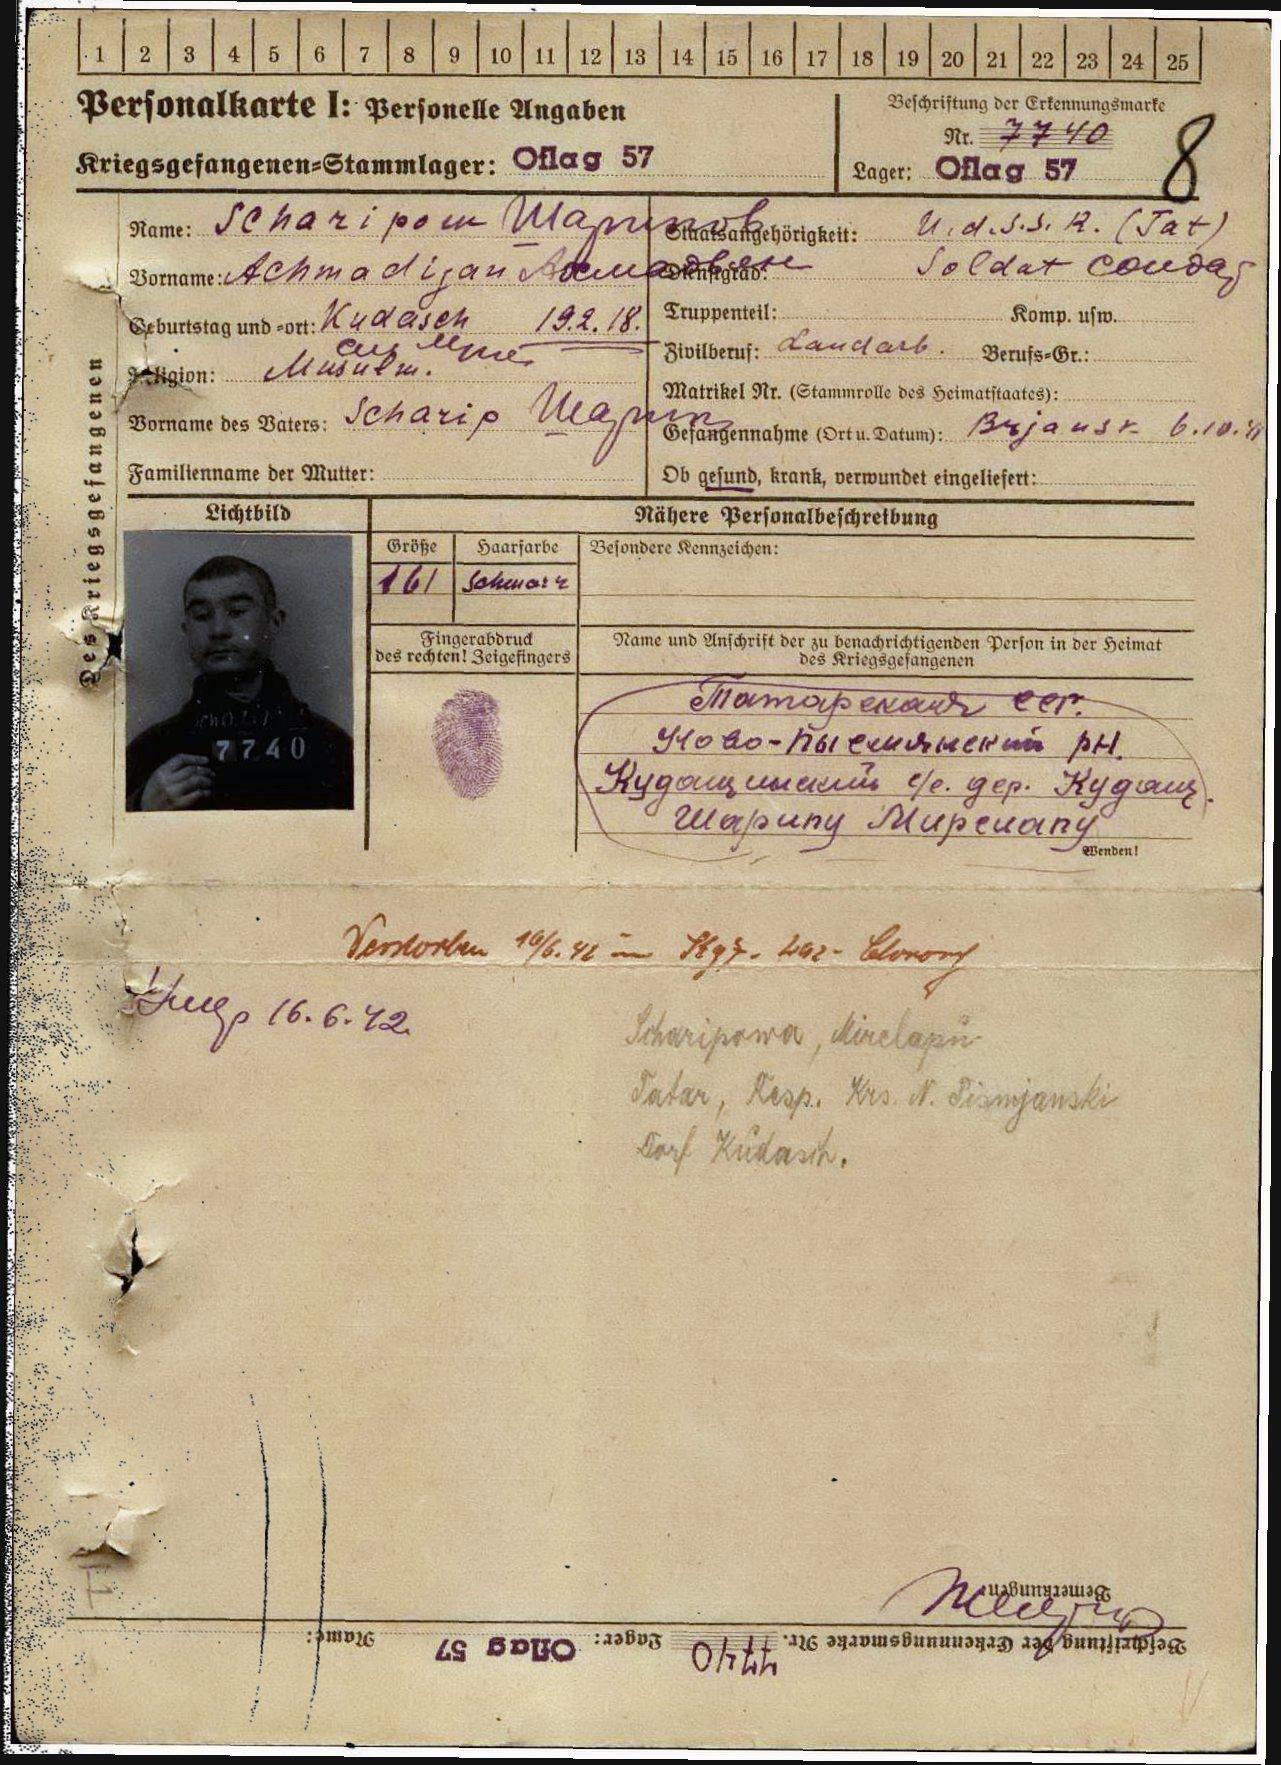 1 2 3 4 5 6 7 8 9 10 11 12 13 14 15 16 17 18 19 20 21 22 23 24 25
Personalkarte I: Personelle Angaben
Kriegsgefangenen-Stammlager: Oflag 57
Beschriftung der Erkennungsmarke
Nr. 7740
Lager: Oflag 57
8
Des Kriegsgefangenen
Name: Scharipow Шарипов
Vorname: Achmadigan
Geburtstag und -ort: Kudasch 19.2.18.
Religion: Musulm.
Vorname des Vaters: Scharip Шарип
Familienname der Mutter:
Staatsangehörigkeit: U.d.S.S.R. (Tat)
Dienstgrad: Soldat солдат
Truppenteil: Komp. usw.
Zivilberuf: Landarb. Berufs-Gr.:
Matrikel Nr. (Stammrolle des Heimatstaates):
Gefangennahme (Ort u. Datum): Brjansk 6.10.41
Ob gesund, krank, verwundet eingeliefert:
Lichtbild
Nähere Personalbeschreibung
Größe Haarfarbe Besondere Kennzeichen:
161 schwarz
Fingerabdruck
des rechten! Zeigefingers
Name und Anschrift der zu benachrichtigenden Person in der Heimat
des Kriegsgefangenen
7740
Татарская ССР.
Ново-Письмянский рн.
Кудашинский с/с. дер. Кудаш.
Шарипу Мирсалапу
Wenden!
Verstorben 16/6.42 im Kgf.-Laz-
Умер 16.6.42
Scharipowa, Mirclapu
Tatar, Resp. Krs. N. Pismjanski
Dorf Kudasch.
Bemerkungen:
Beschriftung der Erkennungsmarke Nr. 7740 Lager: Oflag 57 Name: